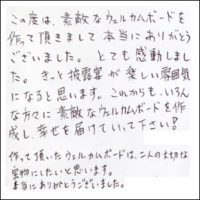 この度は、素敵なウェルカムボードを
作って頂きまして本当にありがとう
ございました。とても感動しまし
た。きっと披露宴が楽しい雰囲気
になると思います。これからも、いろん
な方々に素敵なウェルカムボードを作
成し、幸せを届けていって下さい！
作って頂いたウェルカムボードは、二人の大切な
宝物にしたいと思います。
本当にありがとうございました。